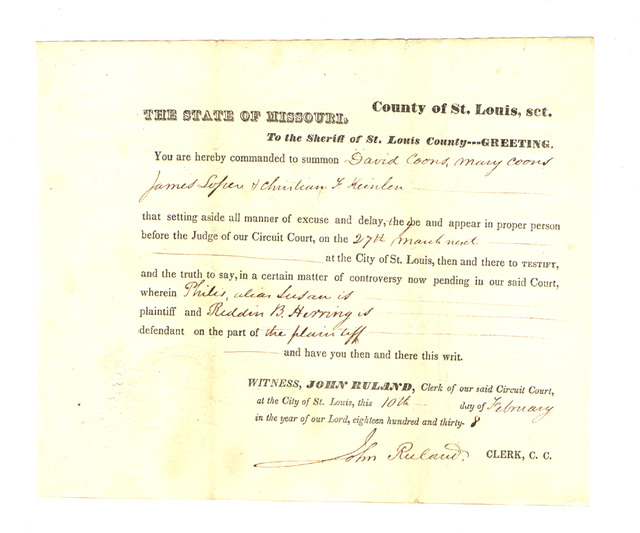 County of St. Louis, sct.
THE STATE OF MISSOURI,
To the Sheriff of St. Louis County---GREETING.
You are hereby commanded to summon David Coons, Mary Coons
James & Christian F
that setting aside all manner of excuse and delay, the be and appear in proper person
before the Judge of our Circuit Court, on the 27th March next
at the City of St. Louis, then and there to TESTIFY,
and the truth to say, in a certain matter of controversy now pending in our said Court,
wherein Philes, alias Susan is
plaintiff and Reddin B. Herring is
defendant on the part of the plaintiff
and have you then and there this writ.
WITNESS, JOHN RULAND, Clerk of our said Circuit Court,
at the City of St. Louis, this 10th day of February
in the year of our Lord, eighteen hundred and thirty-8
John Ruland. CLERK, C. C.